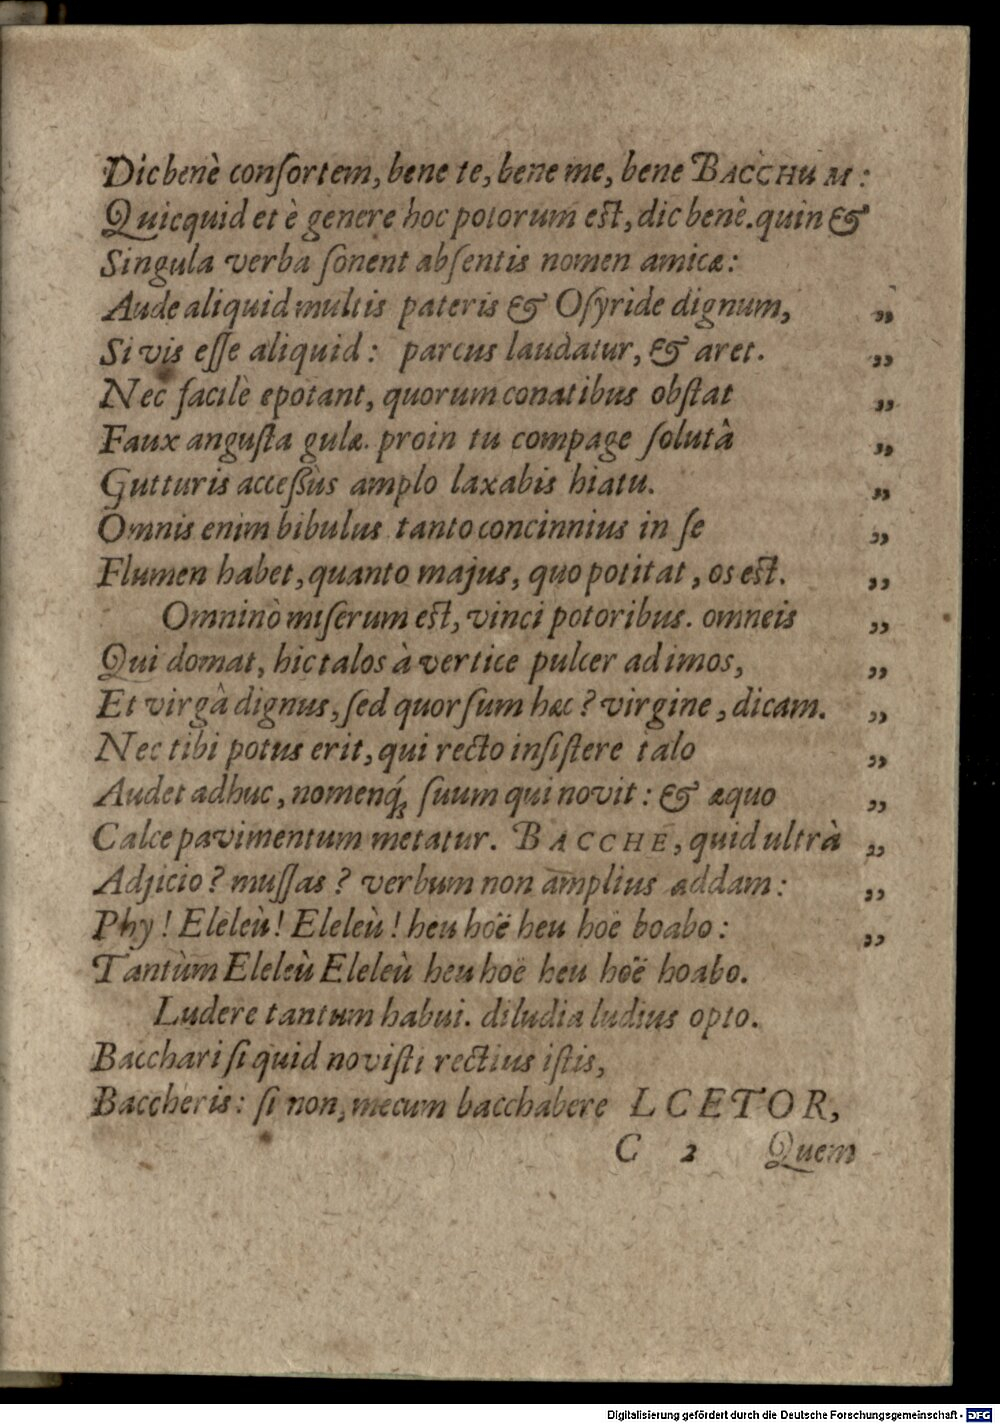 Dic benè conſortem, bene te, bene me, bene BACCHUM:
Quicquid et è genere hoc potorum eſt, dic benè. quin &
Singula verba ſonent abſentis nomen amicæ:
Aude aliquid multis pateris & Oſyride dignum, „
Si vis eſſe aliquid: parcus laudatur, & aret. „
Nec facilè epotant, quorum conatibus obſtat „
Faux anguſta gulæ. proin tu compage ſolutâ „
Gutturis acceſſùs amplo laxabis hiatu. „
Omnis enim bibulus tanto concinnius in ſe „
Flumen habet, quanto majus, quo potitat, os eſt. „
Omninò miſerum eſt, vinci potoribus. omneis „
Qui domat, hic talos à vertice pulcer ad imos, „
Et virgâ dignus, ſed quorſum hæc? virgine, dicam. „
Nec tibi potus erit, qui recto inſiſtere talo „
Audet adhuc, nomenq́; ſuum qui novit: & æquo „
Calce pavimentum metatur. BACCHE, quid ultrà „
Adjicio? muſſas? verbum non amplius addam: „
Phy! Eleleù! Eleleù! heu hoë heu hoë boabo: „
Tantùm Eleleù Eleleù heu hoë heu hoë hoabo.
Ludere tantum habui. diludia ludius opto.
Bacchari ſi quid noviſti rectius iſtis,
Baccheris: ſi non, mecum bacchabere LCETOR,
C 2 Quem
Digitalisierung gefördert durch die Deutsche Forschungsgemeinschaft - DFG